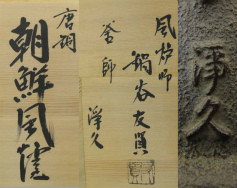 唐銅
朝鮮風
風炉師 鍋谷友
釜師 浄久
淨久